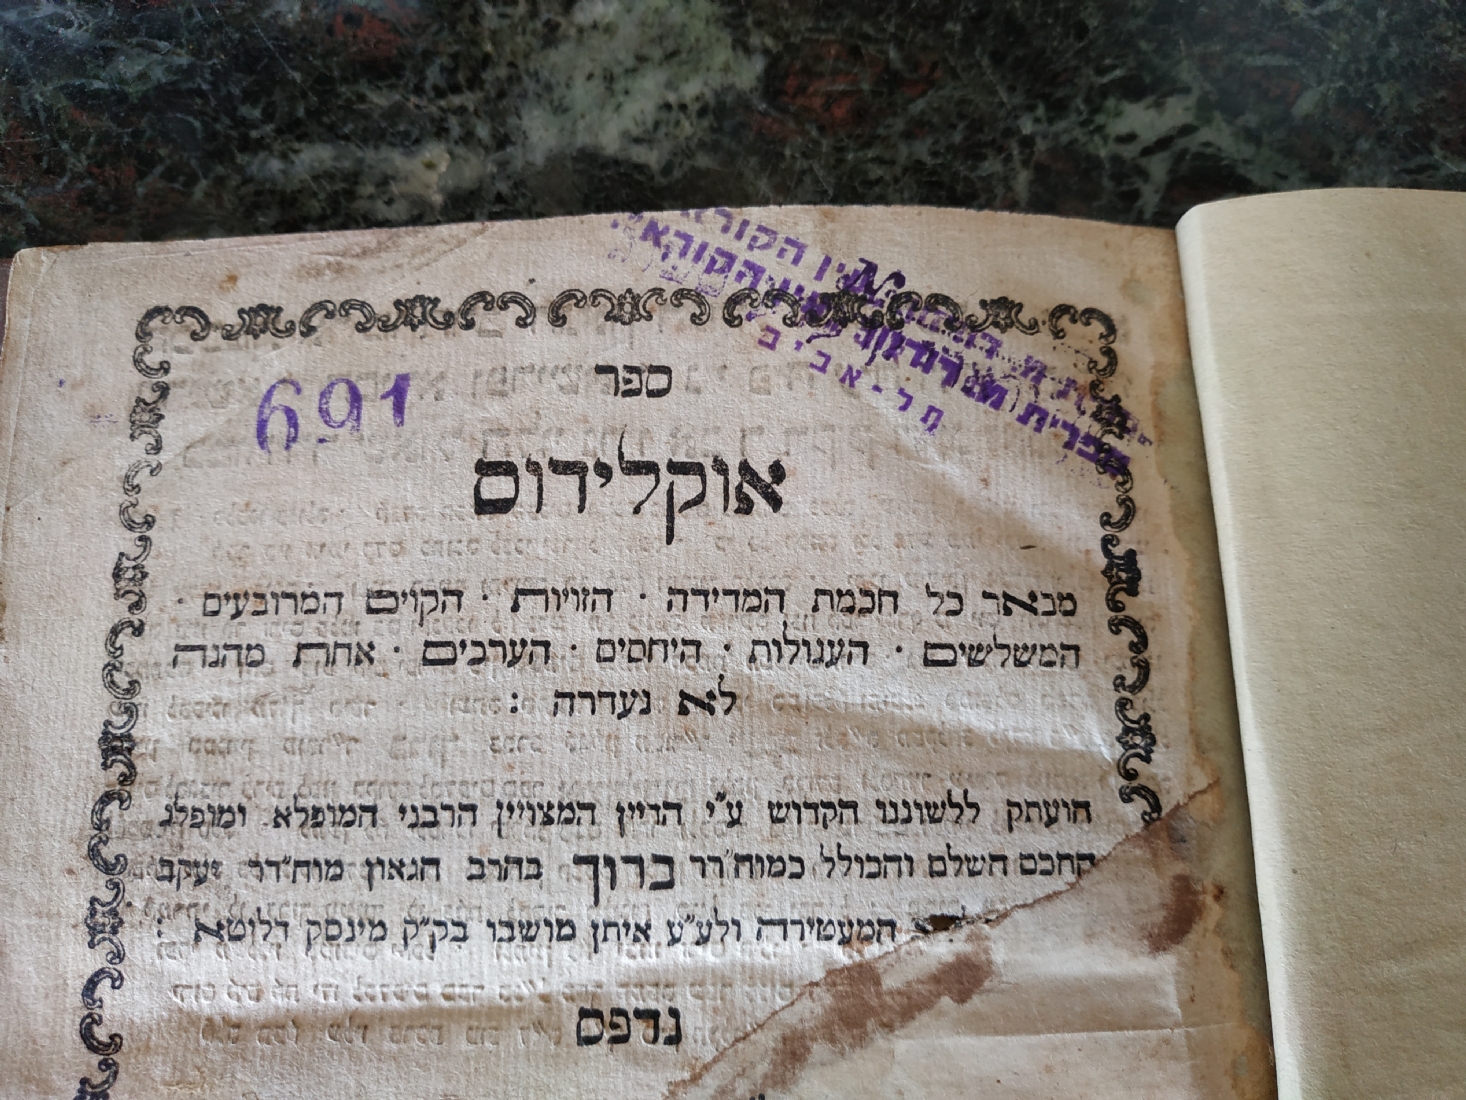 691
תל-אביב
ספר
אוקלידוס
מבאר כל חכמת המדידה · הזויות · הקוים המרובעים ·
המשלשים · העגולות · היחסים · הערכים · אחת מהנה
לא נעדרה :
הועתק ללשוננו הקדוש ע״י הדיין המצויין הרבני המופלא ומופלג
החכם השלם והכולל כמוה״רר ברוך בהרב הגאון מוה״דר יעקב
המעטירה ולע״ע איתן מושבו בק״ק מינסק דלוטא
נדפס